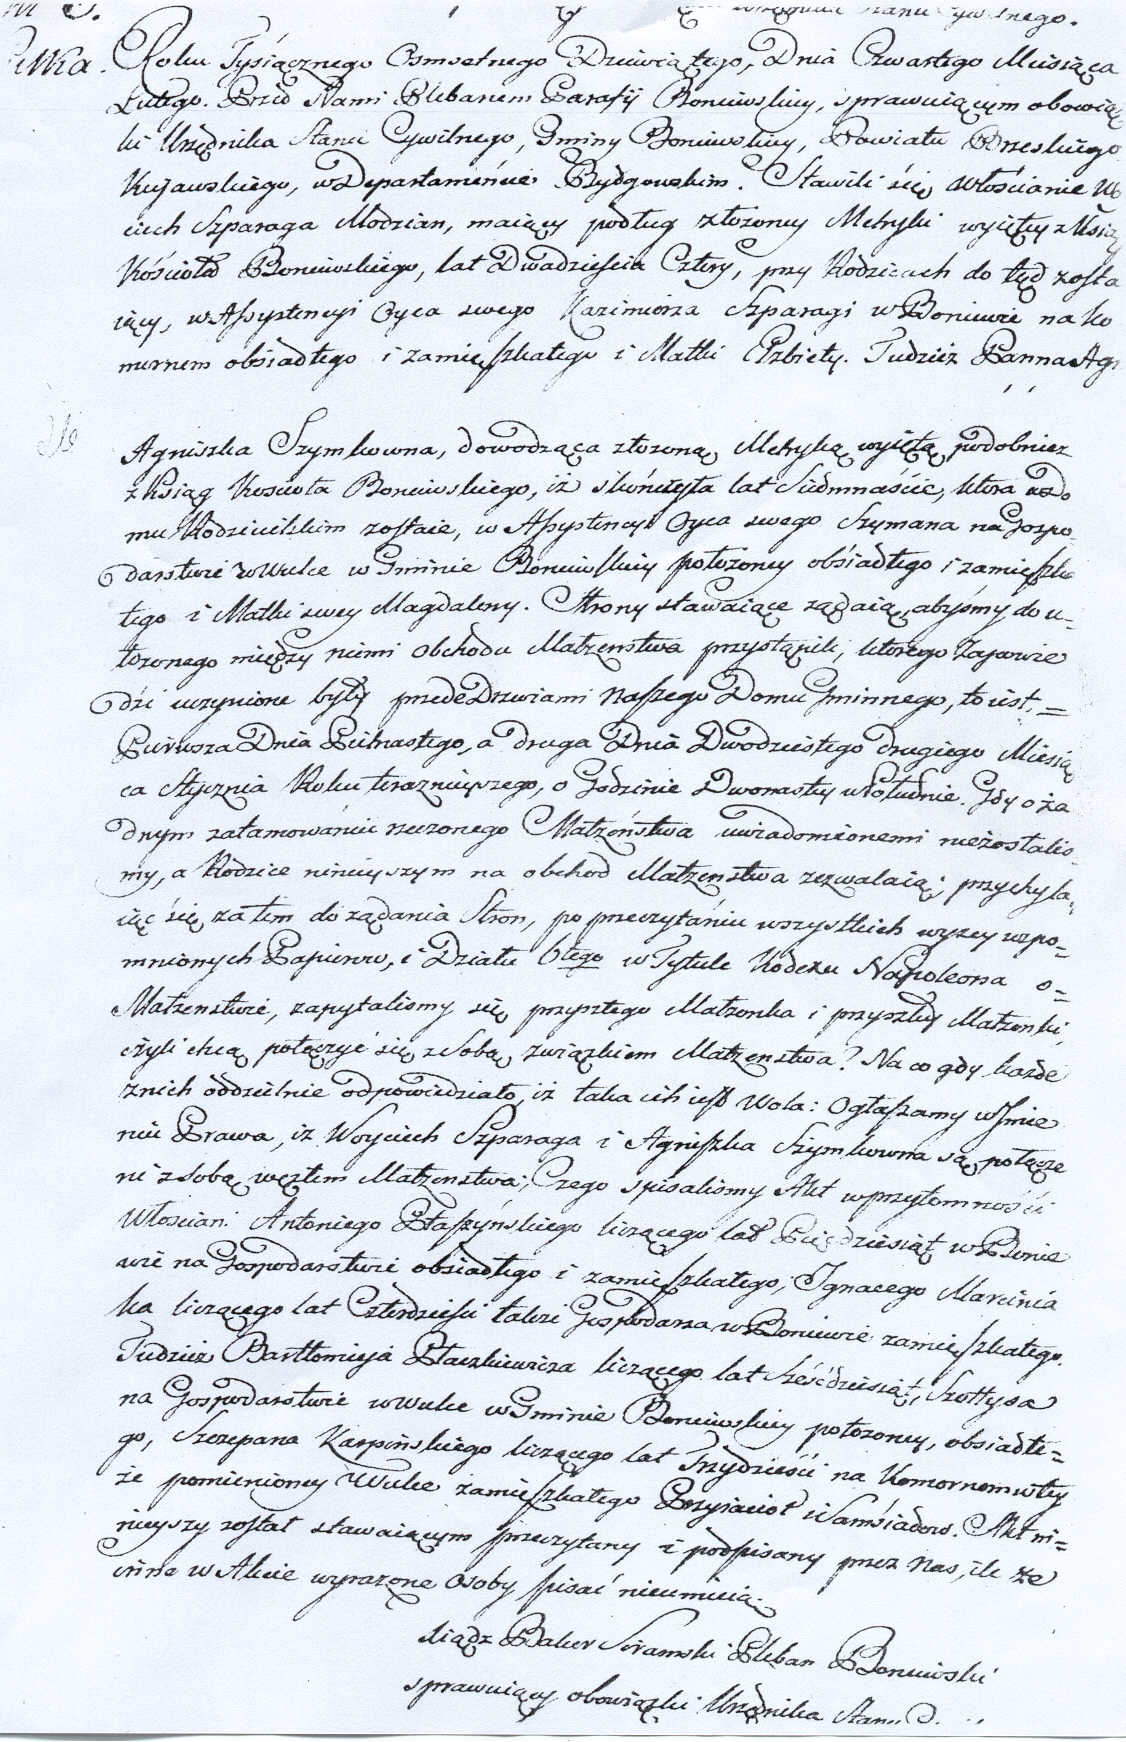 Stanu Cywilnego.
Wulka. Roku Tysiącznego Osmsetnego Dziewiątego, Dnia Czwartego Miesiąca
Lutego. Przed Nami Plebanem Parafij Boniewskiey, sprawuiącym obowiąz
ki Urzędnika Stanu Cywilnego, Gminy Boniewskiey, Powiatu Brzeskiego
Kujawskiego, w Departamencie Bydgowskim. Stawili się Włościanie Wo
ciech Szparaga Młodzian, maiący podług złożoney Metryki wyiętey z Ksiąg
Kościoła Boniewskiego, lat Dwadzieścia Cztery, przy Rodzicach do tąd zosta
iący, w Assystencyi Oyca swego Kazimierza Szparagi w Boniewie na Ko
mornem obsiadłego i zamięszkałego i Matki Elzbiety. Tudzież Panna Ag
Agniszka Szymkowna, dowodząca złożoną Metryką wyiętą podobniez
z Ksiąg Kościoła Boniewskiego, iż skończyła lat Siedmnaście, która w Do
mu Rodzicielskim zostaie, w Assystencyi Oyca swego Szymana na Gospo
darstwie w Wulce w Gminie Boniewskiey położoney obsiadłego i zamięszka
łego i Matki swey Magdaleny. Strony stawaiące ządaią, abyśmy do u=
łozonego między niemi obchodu Małzenstwa przystąpili, którego Zapowie
dzi uczynione były przede Drzwiami Naszego Domu Gminnego, to iest =
Pierwsza Dnia Pietnastego, a druga Dnia Dwodziestego drugiego Miesią
ca Stycznia Roku teraznieyszego, o Godzinie Dwonastey w Południe. Gdy o ża
dnym zatamowaniu rzeczonego Małżeństwa uwiadomionemi niezostalis=
my, a Rodzice ninieyszym na obchod Małzenstwa zezwalaią; przychyla=
iąc się zatem do ządania Stron, po przeczytaniu wszystkich wyzey wspo=
mnionych Papierow, i Działu 6tego w Tytule Kodexu Napoleona o=
Małzenstwie, zapytalismy się przyszłego Małzonka i przyszłey Małzonki,
czyli chcą połączyć się z Sobą związkiem Małzenstwa? Na co gdy kazde
z nich oddzielnie odpowiedziało, iż taka ich iest Wola: Ogłaszamy w Imie
niu Prawa, iz Woyciech Szparaga i Agniszka Szymkowna są połącze
ni z Sobą węzłem Małzenstwa; Czego spisalismy Akt w przytomności
Włoscian: Antoniego Ptaszyńskiego liczącego lat Pięcdziesiąt w Bonie
wie na Gospodarstwie obsiadłego i zamieszkałego; Ignacego Marcinia
ka liczącego lat Czterdzieści takze Gospodarza w Boniewie zamieszkałego.
Tudzież Bartłomieja Ptaczkiewicza liczącego lat Sześcdziesiąt, Szołtysa
na Gospodarstwie w Wulce w Gminie Boniewskiey położoney, obsiadłe=
go, Szczepana Karpińskiego liczącego lat Trzydzieści na Komornem w tey
że pomienioney Wulce zamieszkałego Przyiacioł i Samsiadow. Akt ni=
nieyszy został stawaiącym przeczytany i podpisany przez Nas, ile ze
inne w Akcie wyrazone Osoby pisać nieumieią.
Xiądz Pleban Boniewski
sprawuiący obowiązki Urzędnika Stanu